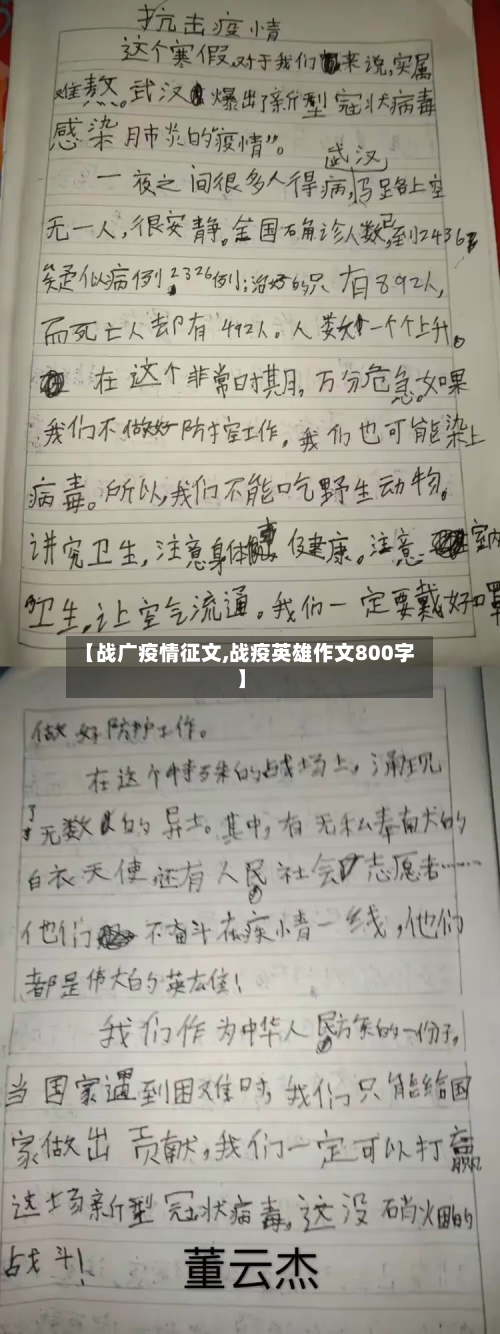 抗击疫情
这个寒假,对于我们来说,实属
难熬。武汉爆出了新型冠状病毒
感染肺炎的"疫情"。
武汉
一夜之间很多人得病,马路上空
无一人,很安静。全国确诊人数已到2436了
疑似病例2326例;治好的只有892人,
而死亡人却有492人。人数一个个上升。
在这个非常时期,万分危急。如果
我们不做好防控工作,我们也可能染上
病毒。所以,我们不能吃野生动物。
讲究卫生,注意身体健康。注意室内
卫生,让空气流通。我们一定要戴好口罩
【战广疫情征文,战疫英雄作文800字
】
做好防护工作。
在这个特殊的战场上,涌现
了无数的异士。其中,有无私奉献的
白衣天使,还有人民社会志愿者……
他们不奋斗在疫情一线,他们
都是伟大的英雄!
我们作为中华人民方案的一份子,
当国家遇到困难时,我们只能给国
家做出贡献,我们一定可以打赢
这场新型冠状病毒,这没硝烟的
战斗!
董云杰